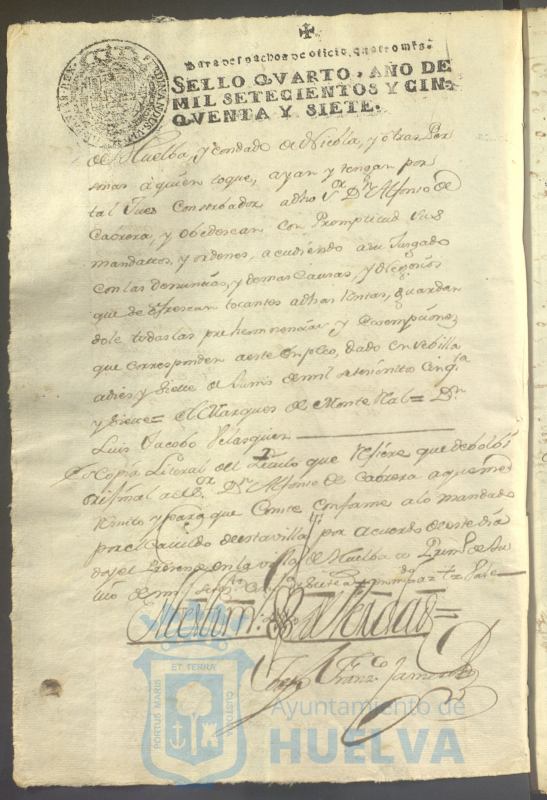 Para despachos de oficio, quatro mrs.
SELLO QVARTO, AÑO DE
MIL SETECIENTOS Y CINQ-
QVENTA Y SIETE.
de Huelba, y Condado de Niebla, y otras Per
sonas á quien toque, ayan y tengan por
tal Juez Conserbador a dho Sr. Dn. Alfonso de
Cabrera, y obedescan con Promptitud sus
mandatos y ordenes, acudiendo a su Juzgado
con las denuncias, y demas Causas, y Negocios
que se ofrescan tocantes a dhas Rentas, guardan
dole todas las prehemynencias y exempciones
que corresponden a este Empleo, dado en Sebilla
a dies y siete de Junio de mil setecientos cinqta
y siete = El Marques de Monte Real = Dn.
Luis Jacobo Velasquez
Es Copia Literal del Titulo que
original a el Sr. Dn. Alfonso de Cabrera a quien
Remito y para que Conste conforme a lo mandado
por el Cavildo de esta villa por acuerdo de este dia
doy el presente en la villa de Huelba a Primo de Ju
lio de mil setetos Cinqta y siete
de Verdad =
Franco
PORTUS MARIS
ET TERRÆ
CUSTODIA
Ayuntamiento de
HUELVA